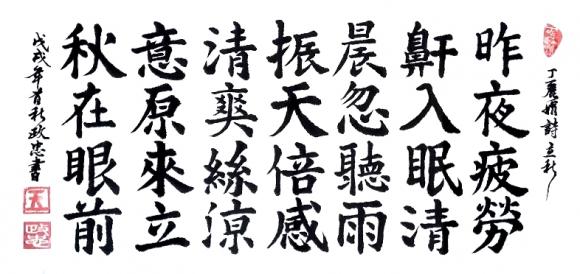 丁麗娟詩立秋
昨夜疲勞
鼾入眠清
晨忽聽雨
振天倍感
清爽絲涼
意原來立
秋在眼前
戊戌年首秋政忠書